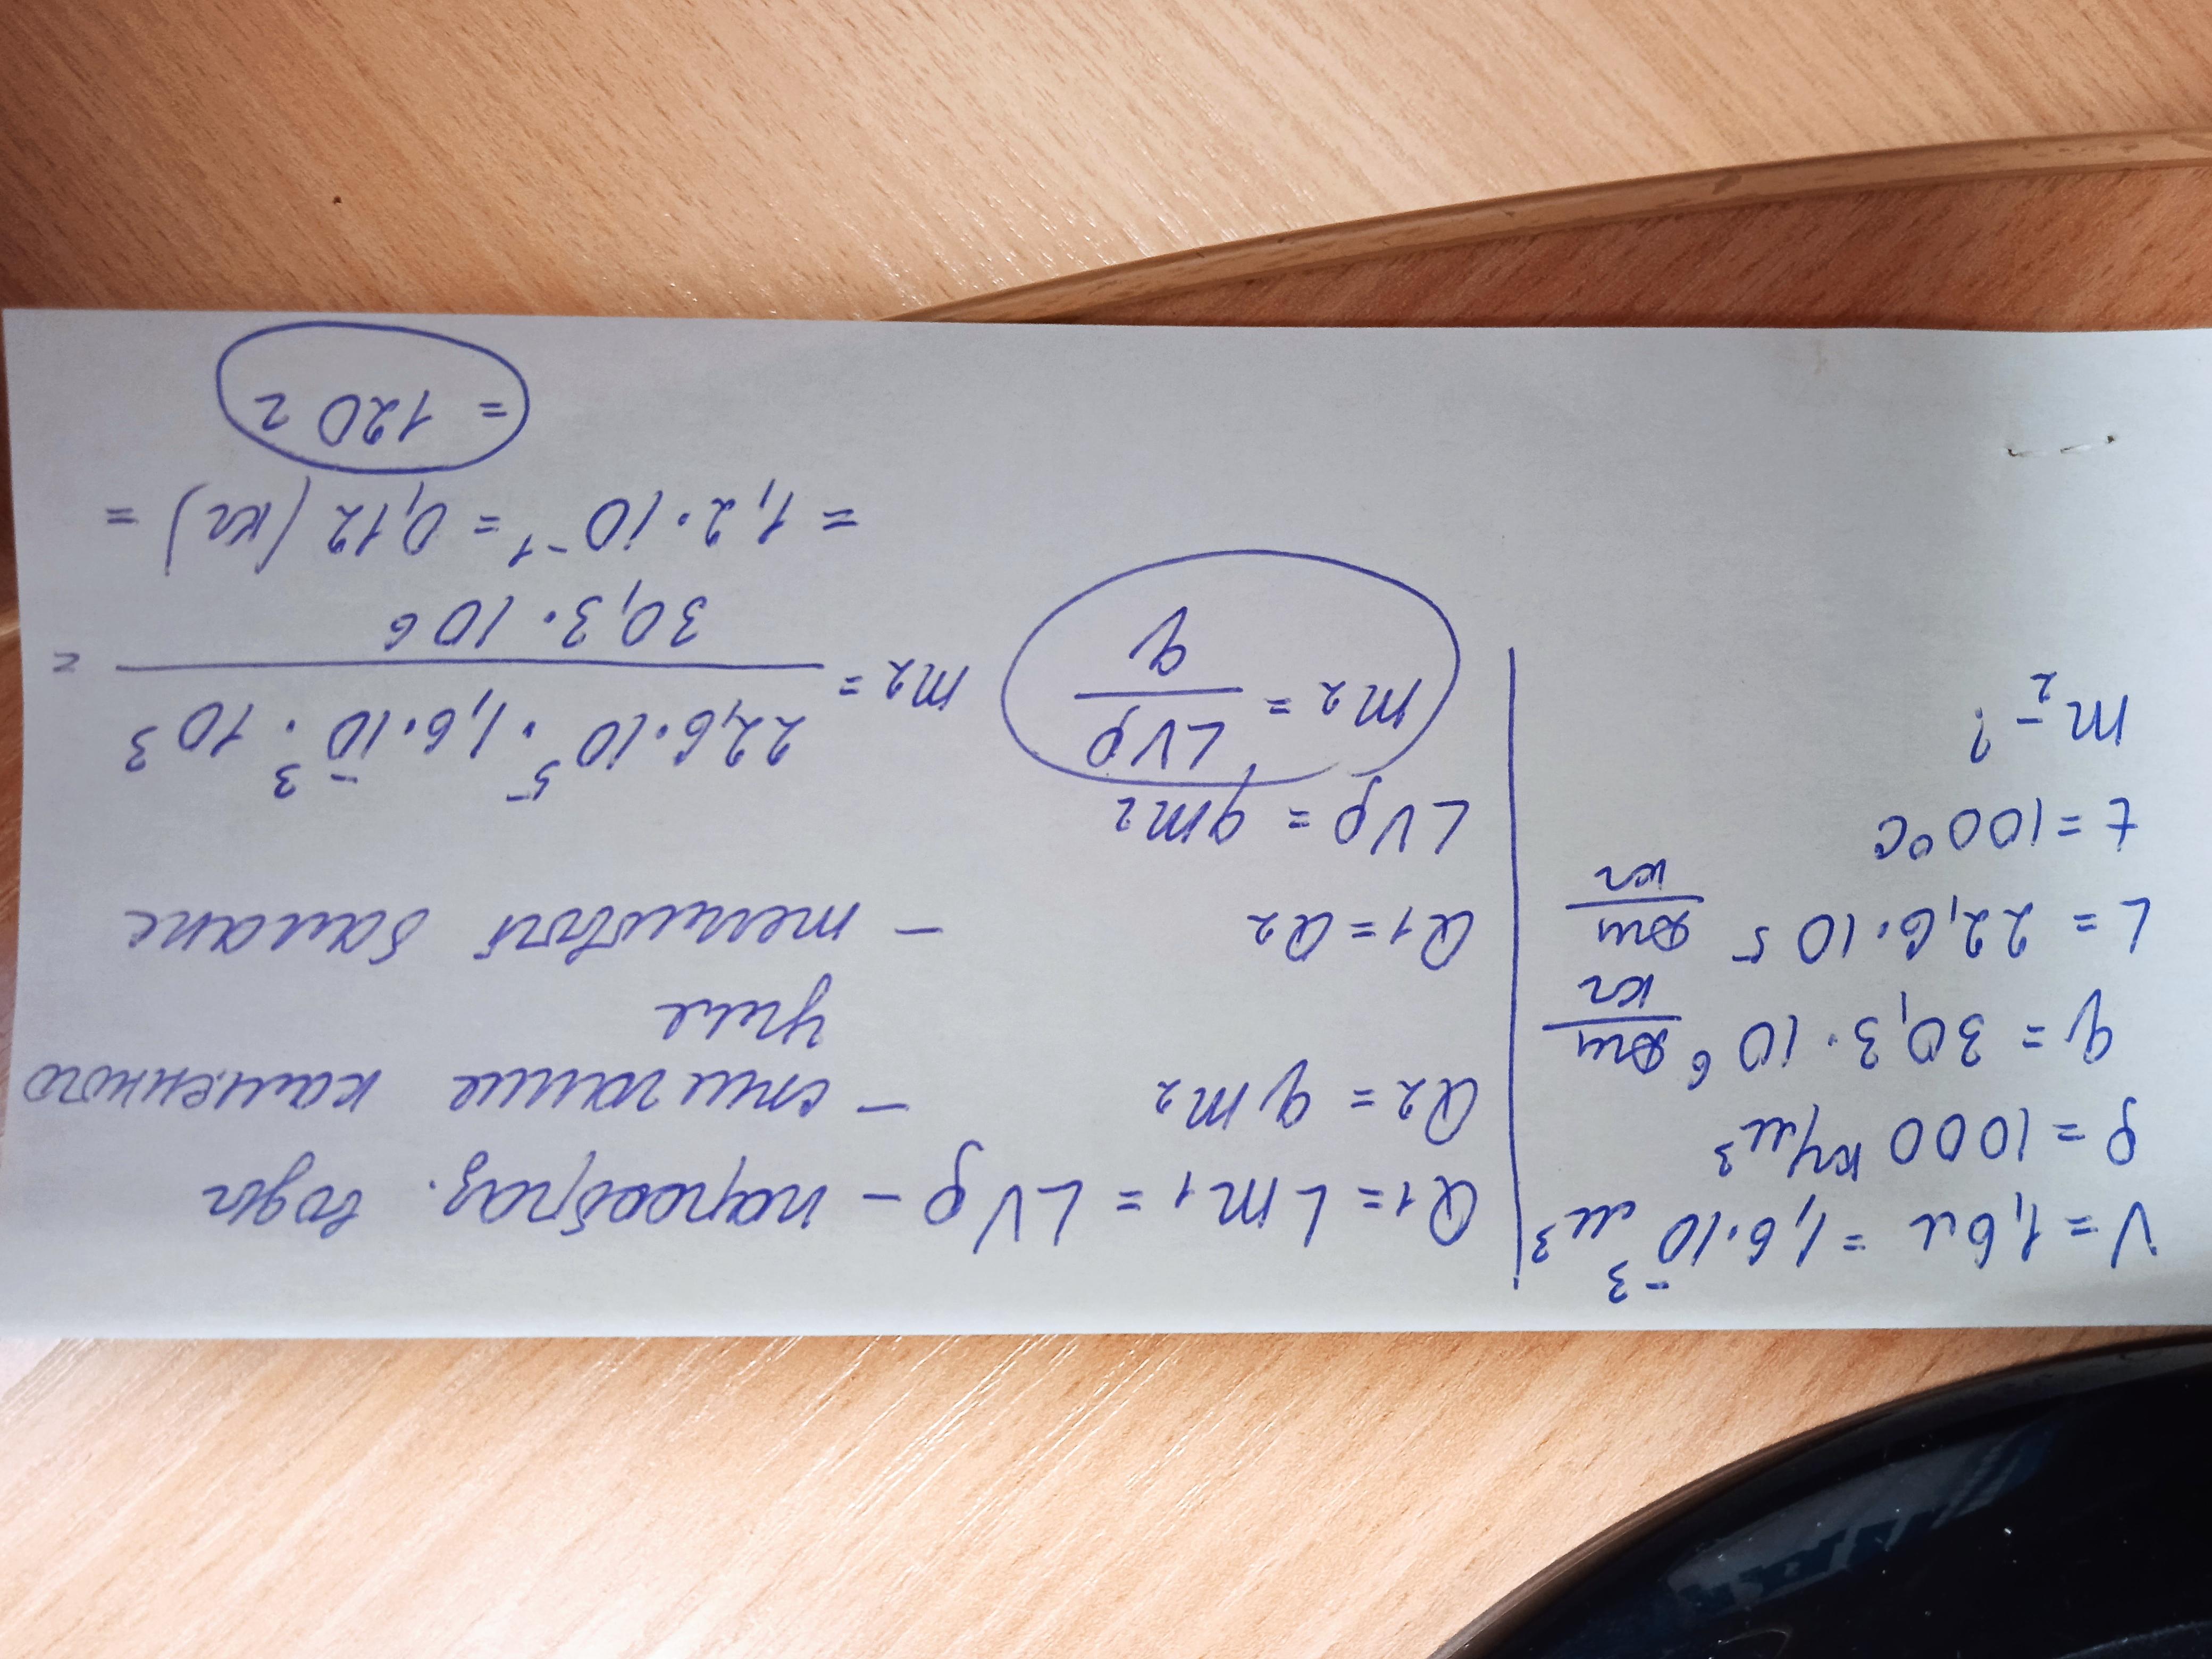 V = 1,6 л = 1,6·10⁻³ м³
ρ = 1000 кг/м³
q = 30,3·10⁶ Дж/кг
L = 22,6·10⁵ Дж/кг
t = 100°C
m₂ - ?
Q₁ = Lm₁ = LVρ - парообраз. воды
Q₂ = qm₂ - сжигание каменного
угля
Q₁ = Q₂ - тепловой баланс
LVρ = qm₂
m₂ = LVρ/q
m₂ = 22,6·10⁵·1,6·10⁻³·10³/30,3·10⁶ =
= 1,2·10⁻¹ = 0,12 (кг) =
= 120 г